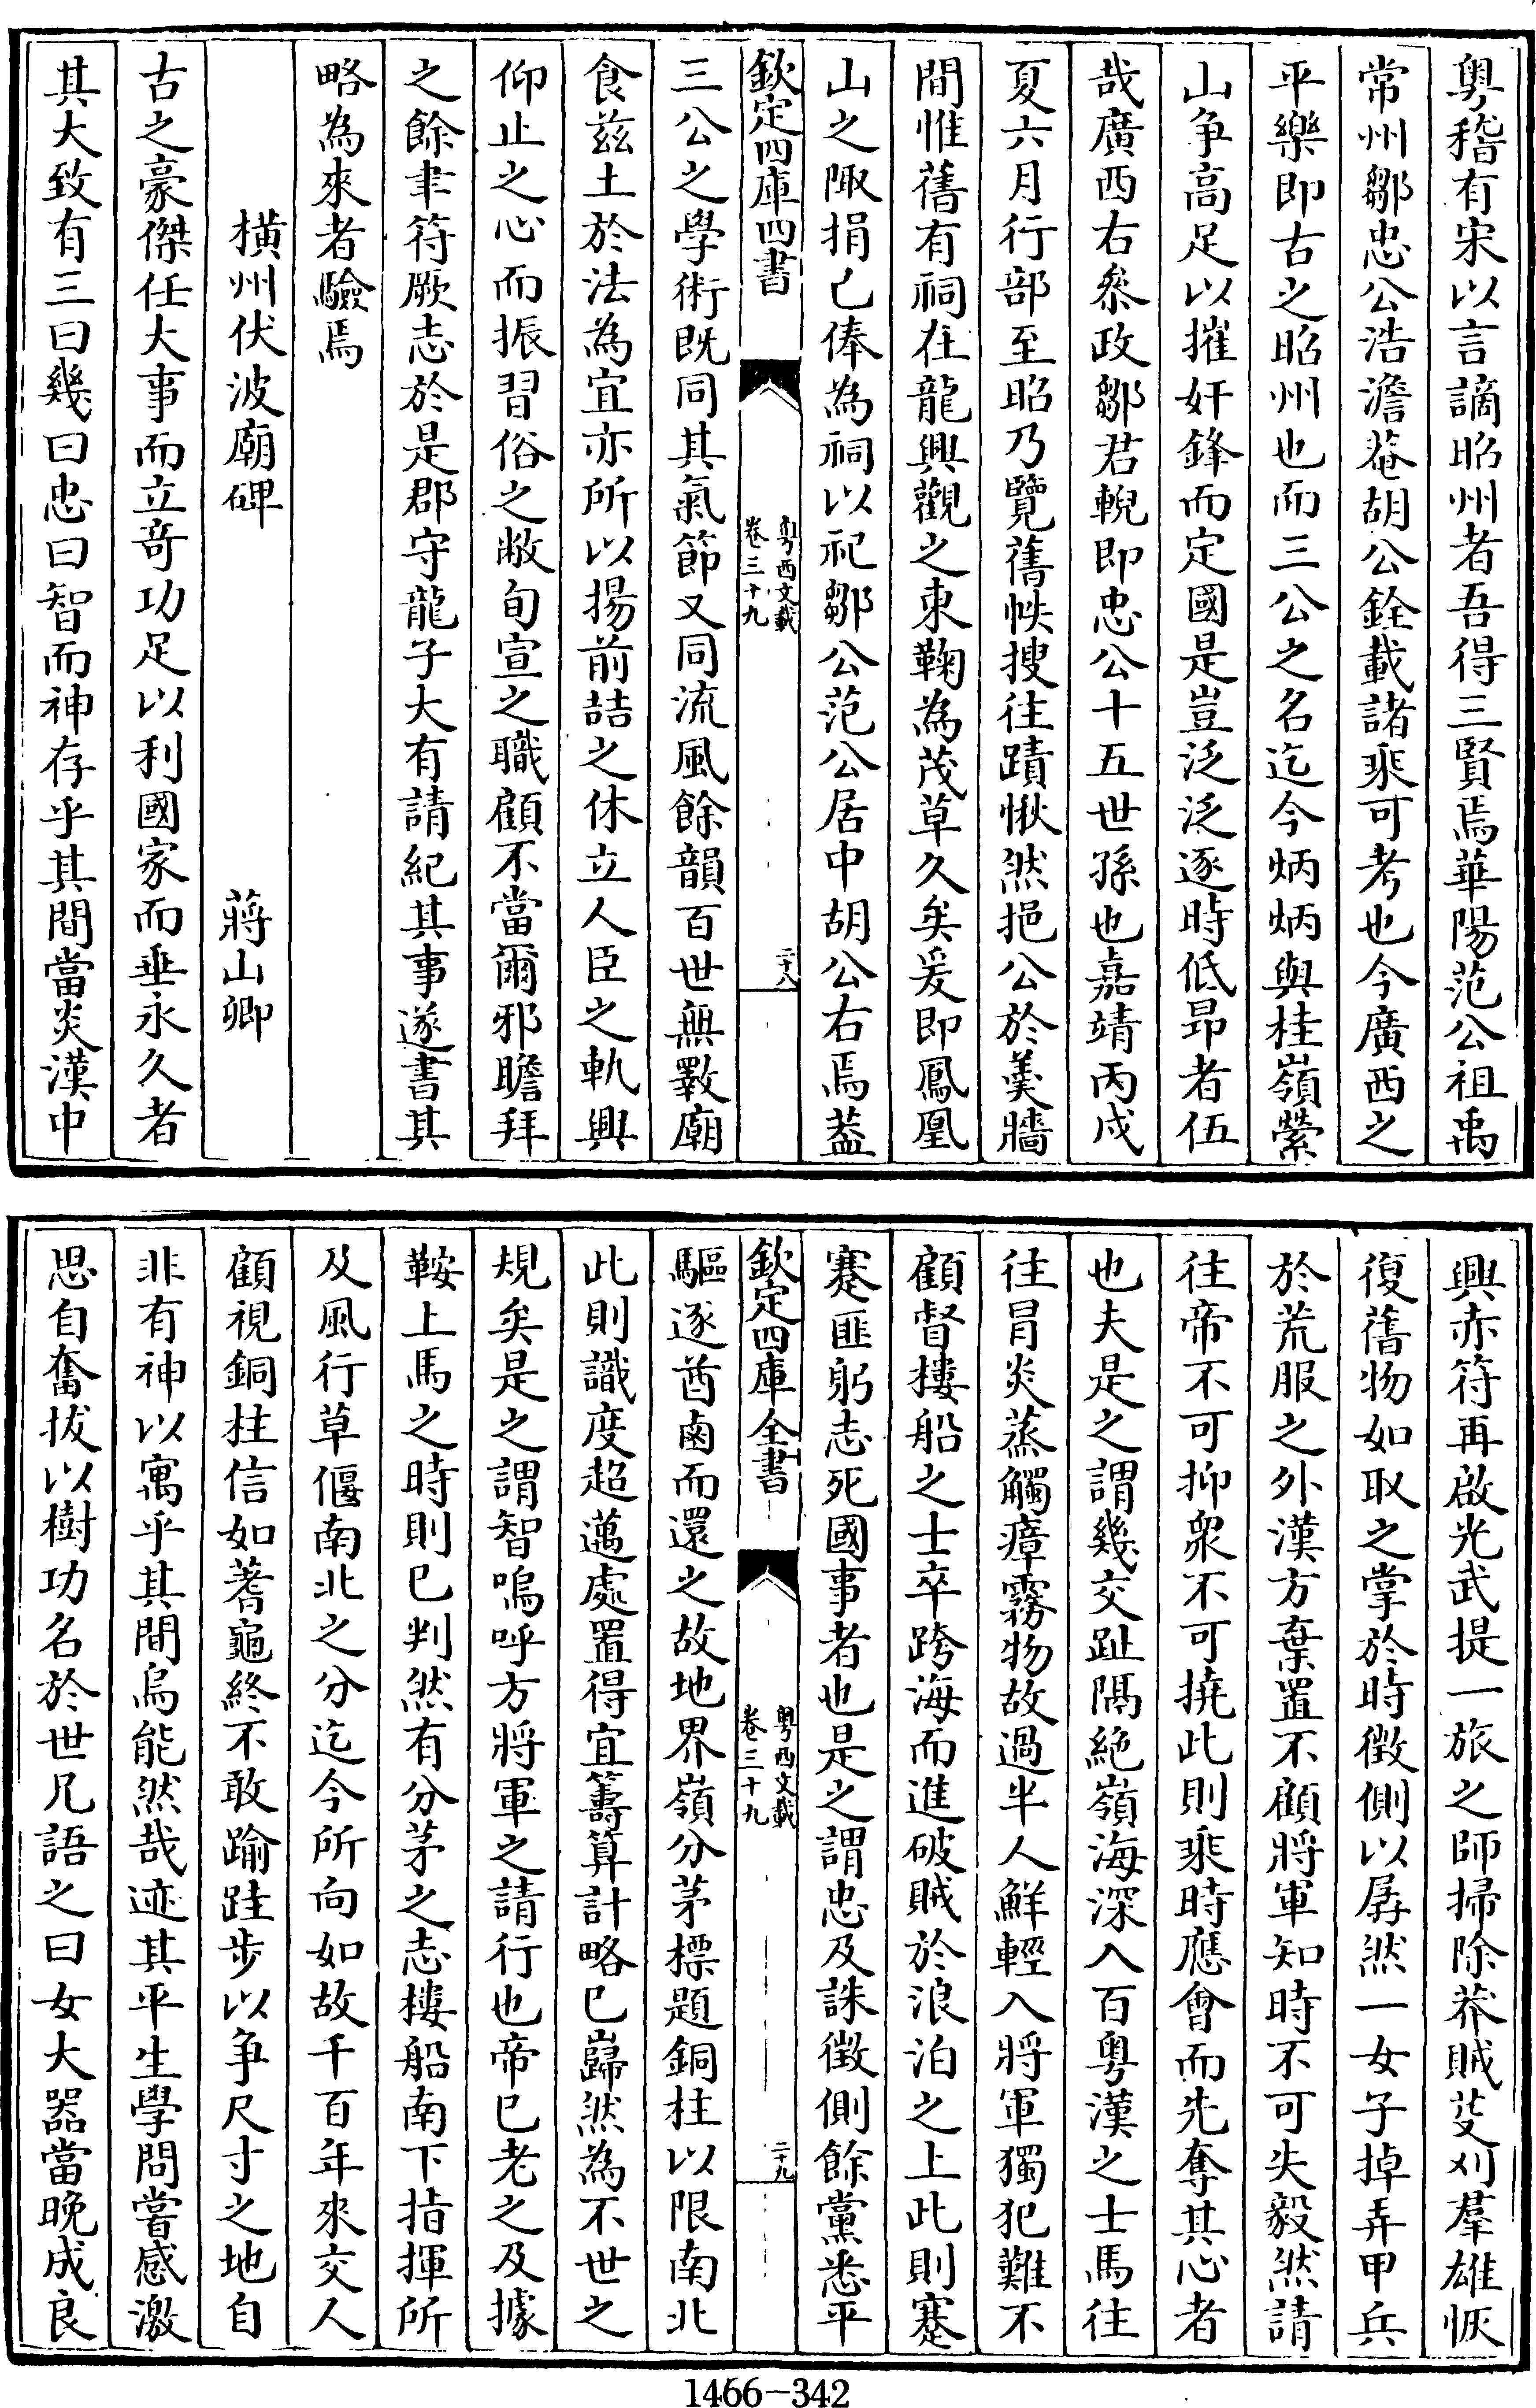 粤稽有宋以言謫昭州者吾得三賢焉華陽范公祖禹
常州鄒忠公浩澹菴胡公銓載諸乘可考也今廣西之
平樂即古之昭州也而三公之名迄今炳炳與桂嶺縈
山争高足以摧奸鋒而定國是豈泛泛逐時低昂者伍
哉廣西右叅政鄒君輗即忠公十五世孫也嘉靖丙戌
夏六月行部至昭乃覽舊帙搜往蹟愀然挹公於羮牆
間惟舊有祠在龍興觀之東鞠為茂草久矣爰即鳳凰
山之陬捐己俸為祠以祀鄒公范公居中胡公右焉葢
欽定四庫四書
粤西文載
卷三十九
二十八
三公之學術既同其氣節又同流風餘韻百世無斁廟
食兹土於法為宜亦所以揚前喆之休立人臣之軌興
仰止之心而振習俗之敝旬宣之職顧不當爾邪瞻拜
之餘聿符厥志於是郡守龍子大有請紀其事遂書其
略為來者驗焉
橫州伏波廟碑 蔣山卿
古之豪傑任大事而立竒功足以利國家而垂永久者
其大致有三曰幾曰忠曰智而神存乎其間當炎漢中
興赤符再啟光武提一旅之師掃除莽賊芟刈羣雄恢
復舊物如取之掌於時徴側以孱然一女子掉弄甲兵
於荒服之外漢方棄置不顧將軍知時不可失毅然請
往帝不可抑衆不可撓此則乘時應會而先奪其心者
也夫是之謂幾交趾隔絶嶺海深入百粤漢之士馬往
往冒炎蒸觸瘴霧物故過半人鮮輕入將軍獨犯難不
顧督樓船之士卒跨海而進破賊於浪泊之上此則蹇
蹇匪躬志死國事者也是之謂忠及誅徴側餘黨悉平
欽定四庫全書
粤西文載
卷三十九
二十九
驅逐酋鹵而還之故地界嶺分茅標題銅柱以限南北
此則識度超邁處置得宜籌算計略已巋然為不世之
規矣是之謂智嗚呼方將軍之請行也帝已老之及據
鞍上馬之時則已判然有分茅之志樓船南下指揮所
及風行草偃南北之分迄今所向如故千百年來交人
顧視銅柱信如蓍龜終不敢踰跬步以争尺寸之地自
非有神以寓乎其間烏能然哉迹其平生學問嘗感激
思自奮拔以樹功名於世兄語之曰女大器當晚成良
1466-342